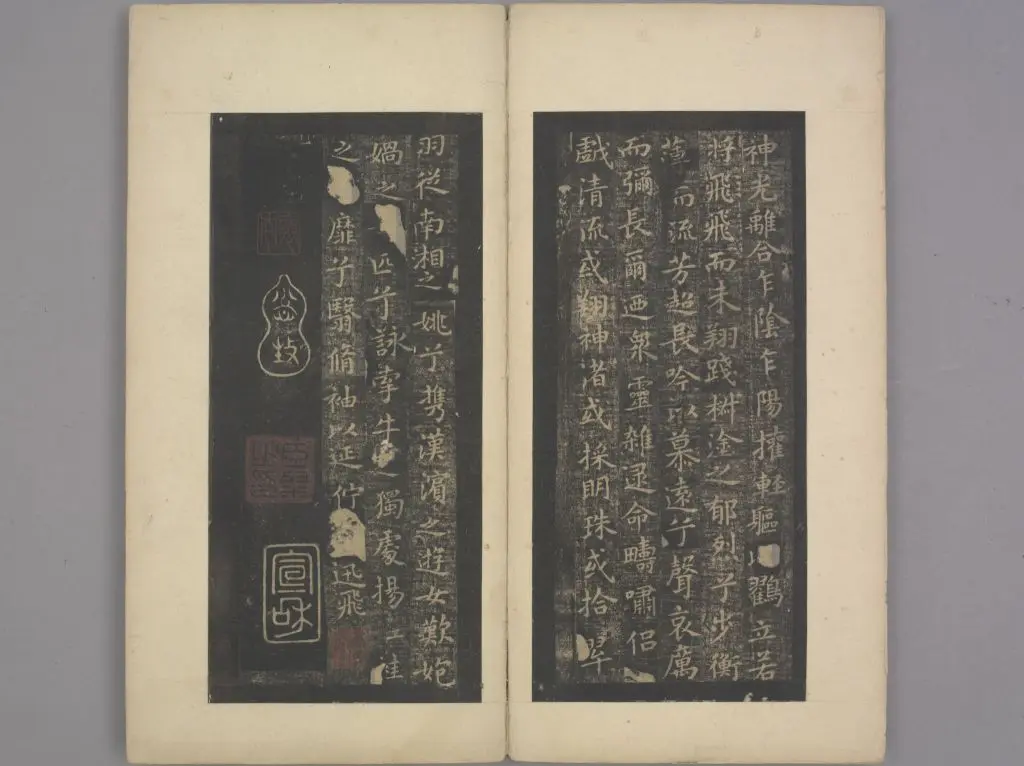 神光離合乍陰乍陽擢輕軀鸛立若
將飛飛而未翔踐椒塗之郁烈兮步衡
薄而流芳超長吟以慕遠兮聲哀厲
而彌長爾迺眾靈雜遝命疇嘯侶
戲清流或翔神渚或採明珠或拾翠
羽從南湘之姚兮攜漢濱之遊女歎匏
媧之匹兮詠牽牛之獨處揚袿
之靡兮翳脩袖以延佇迅飛
宣和